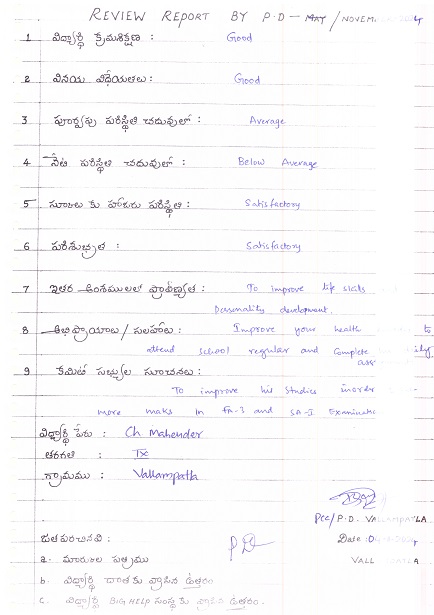 REVIEW REPORT BY P.D - MAY / NOVEM
1 విద్యార్థి క్రమశిక్షణ : Good
2 వినయ విధేయతలు : Good
3 పూర్వపు పరిస్థితి చదువులో : Average
4 నేటి పరిస్థితి చదువులో : Below Average
5 స్కూలు కు హాజరు పరిస్థితి : Satisfactory
6 పరిశుభ్రత : Satisfactory
7 ఇతర అంశములలో ప్రావీణ్యత : To improve life skills
Personality development.
8 అభిప్రాయాలు / సలహాలు : Improve your health to
attend school regular and complete
9 కమిటీ సభ్యుల సూచనలు :
To improve his studies inorder
more maks in FA-3 and SA-I Examinatio
విద్యార్థి పేరు : Ch Mahender
తరగతి : IX
గ్రామము : Vallampatla
PCC / P.D. VALLAMPATLA
జతపరచినవి : P.D Date :
a. మార్కుల పత్రము VALL ATLA
b. విద్యార్థి దాతకు వ్రాసిన ఉత్తరం
c. విద్యార్థి BIG HELP సంస్థకు వ్రాసిన ఉత్తరం.